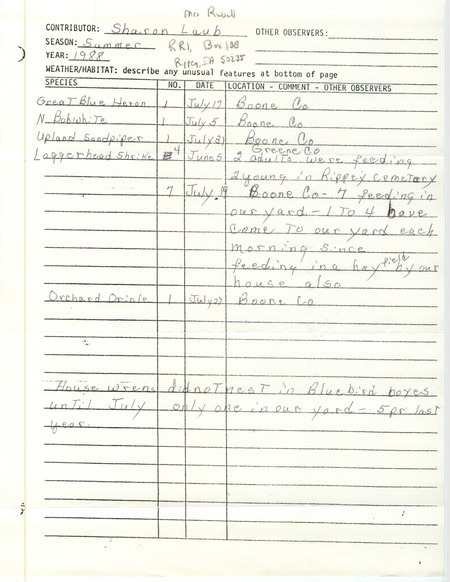 Mrs Russell
CONTRIBUTOR: Sharon Laub OTHER OBSERVERS:
SEASON: Summer RR1, Box 188
YEAR: 1988 Rippey, IA 50235
WEATHER/HABITAT: describe any unusual features at bottom of page
SPECIES NO. DATE LOCATION - COMMENT - OTHER OBSERVERS
Great Blue Heron 1 July 17 Boone Co
N Bobwhite 1 July 5 Boone Co
Upland Sandpiper 1 July 21 Boone Co
Greene Co
Loggerhead Shrike 4 June 5 2 adults were feeding
2 young in Rippey Cemetery
7 July 19 Boone Co - 7 feeding in
our yard - 1 To 4 have
come To our yard each
morning since
feeding in a hay field by our
house also
Orchard Oriole 1 July 27 Boone Co
House wrens did not nest in Bluebird boxes
until July only one in our yard - 5 pr last
year.